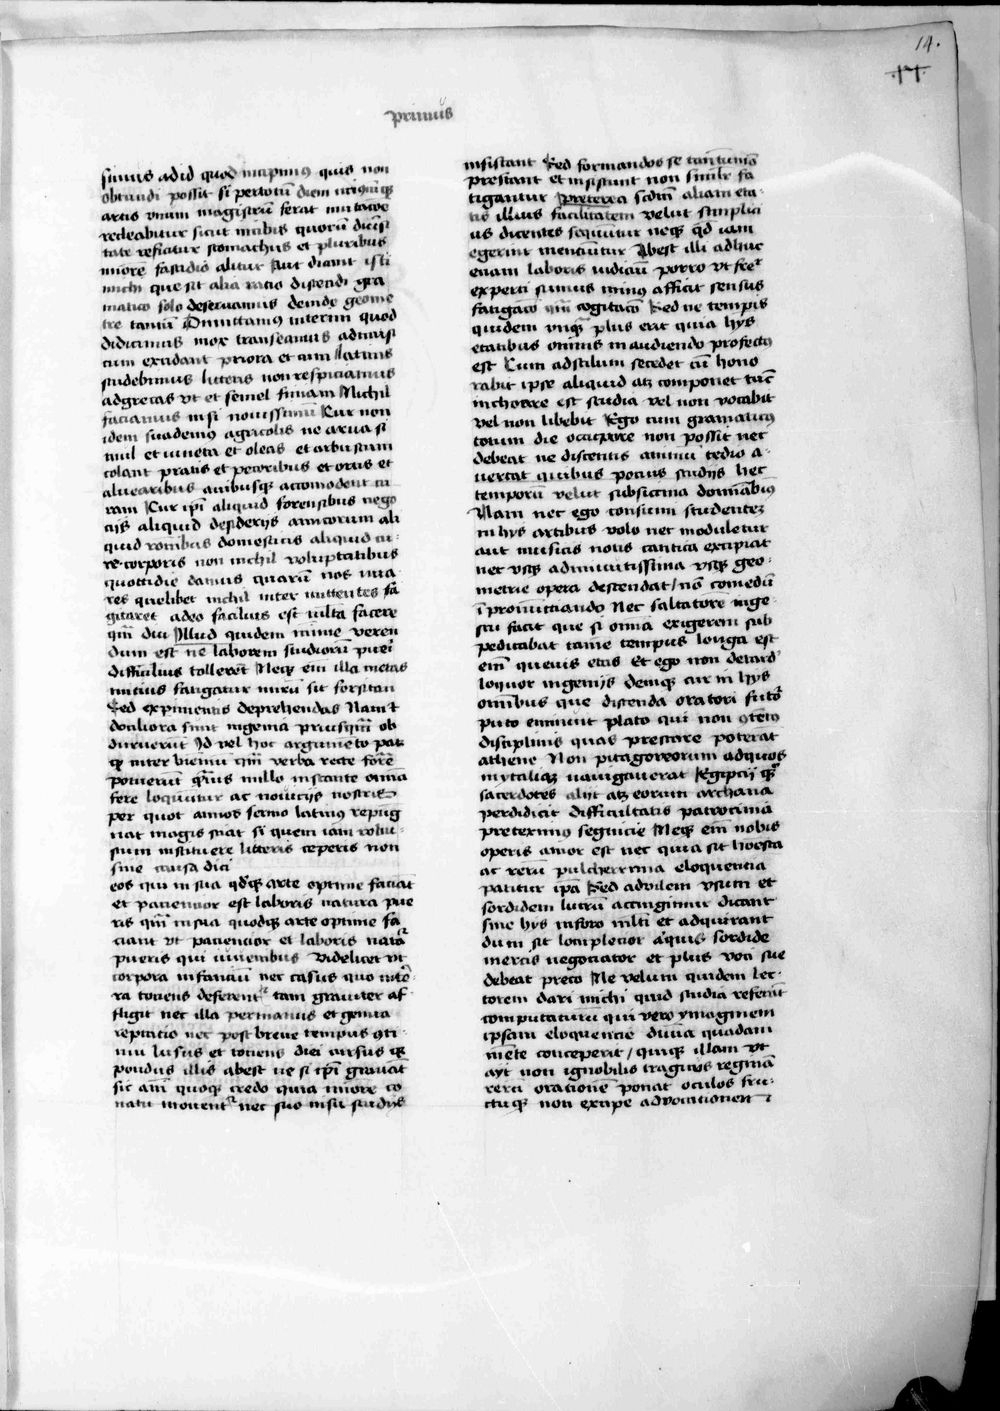 14.
primus
simus ad id quod incipimus quis non
obtundi possit si per totum diem
artis unum magistrum ferat mutacione
recreabitur sicut in cibis quorum diversi
tate reficitur stomachus et pluribus
minore fastidio alitur Aut dicant isti
michi que sit alia ratio discendi gra
matico solo deserviamus deinde geome
tre tantum Omittamus interim quod
didicimus mox transeamus ad musi
cum excidant priora et cum latinis
studebimus litteris non respiciamus
ad grecas ut et semel finiam Nichil
faciamus nisi novissimum Cur non
idem suademus agricolis ne arva si
mul et vineta et oleas et arbustum
colant pratis et pecoribus et ortis et
alvearibus avibusque accomodent cu
ram Cur ipsi aliquid forensibus nego
ciis aliquid desiderijs amicorum ali
quid rationibus domesticis aliquid cu
re corporis non nichil voluptatibus
quottidie damus quarum nos una
res quelibet nichil intermittentes fa
tigaret adeo facilius est multa facere
quam diu Illud quidem minime veren
dum est ne laborem studiorum pueri
difficilius tollerent Neque enim illa metas
minus fatigatur mirum sit forsitan
Sed experimentis deprehendas Nam et
dociliora sunt ingenia priusquam ob
duruerunt Id vel hoc argumento pat
quod inter biennium quam verba recte
potuerunt quamvis nullo instante omnia
fere loquuntur at noviciis nostris
per quot annos sermo latinus repug
nat magis scias si quem iam robu
stum instituere litteris ceperis non
sine causa dici
eos qui in sua quodque arte optime faciat
et patiencior est laboris natura pue
ris quam in sua quodque arte optime fa
ciant ut paciencior et laboris natura
pueris qui iuvenibus Videlicet ut
corpora infantium nec casus quo in ter
ra tociens deferentur tam graviter af
fligit nec illa per manus et genua
reptatio nec post breve tempus conti
nui lusus et totius diei cursus quia
pondus illis abest ne si ipsi gravant
sic animi quoque credo quia minore co
natu moventur nec suo nisu studiis
insistant Sed formandos se tantummodo
prestant et insistunt non similiter fa
tigantur Preterea secundum aliam eta
tis illius facilitatem velut simplici
us dicentes sequuntur neque quod iam
egerint menciuntur Abest illi adhuc
etiam laboris iudicium porro ut frequenter
experti sumus minus afficit sensus
fatigatio quam cogitatio Sed ne temporis
quidem unquam plus erit quia hys
etatibus omnis in audiendo profectus
est Cum ad stilum secedet cum hono
rabit ipse aliquid atque componet tunc
inchoare est studia vel non vocabit
vel non libebit Ergo cum gramaticus
totum die occupare non possit nec
debeat ne discentis animum tedio a
vertat quibus potius studijs hec
temporum velut subsiciva donabimus
Nam nec ego consumi studentes
in hys artibus volo nec moduletur
aut musicis notis cantica excipiat
nec usque ad minutissima usque geo
metrie opera descendat non comedum
in pronunciando Nec saltatorem in ge
stu facit que si omnia exigerem sub
pedicabat tamen tempus longa est
enim quevis etas Et ego non de tard
loquor ingeniis denique cur in hys
omnibus que discenda oratori futuro
puto eminuit plato qui non contentus
disciplinis quas prestare poterat
athene Non pitagoreorum ad quos
in ytaliam navigaverat Egiptij quoque
sacerdotes aliit atque eorum archana
perdidicit difficultatis patrocinia
preteximus segnicie Neque enim nobis
operis amor est nec quia sit honesta
ac rerum pulcherrima eloquentia
patitur ipsa Sed ad vilem usum et
sordidem lucrum accingimur dicant
sine hys in foro multi et adquirant
dum sit lompletior aquis sordide
mercis negotiator et plus voci sue
debeat preco Ne velim quidem lec
torem dari michi quid studia referant
computaturum qui vero ymaginem
ipsam eloquencie divina quadam
mente conceperit / quique illam ut
ayt non ignobilis tragicus reginam
rerum orationem ponat oculos fru
ctuque non ex stipe advocationem